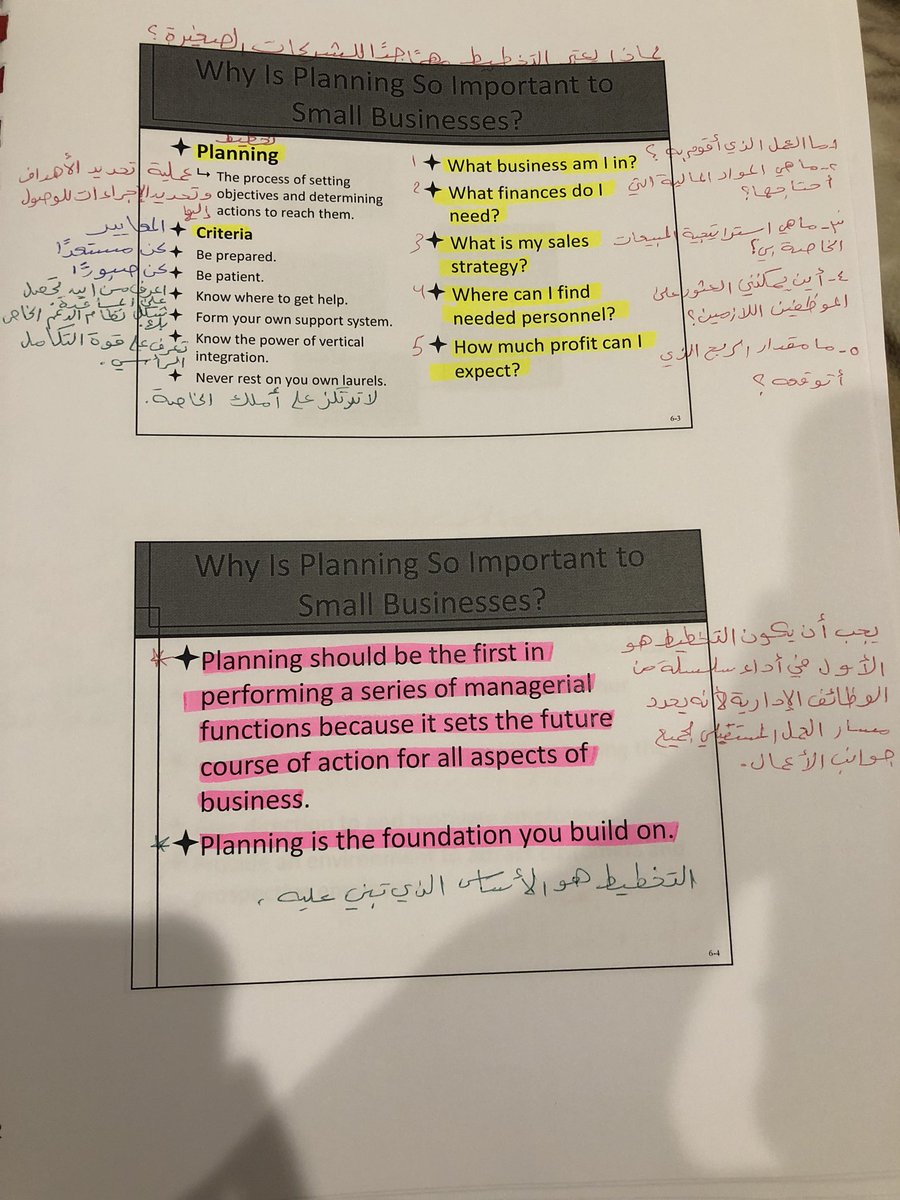 لماذا يعتبر التخطيط مهمًا جدًا للشركات الصغيرة؟
Why Is Planning So Important to
Small Businesses?
تخطيط
Planning
The process of setting
objectives and determining
actions to reach them.
عملية تحديد الأهداف
وتحديد الإجراءات للوصول
إليها
Criteria
المعايير
Be prepared.
كن مستعدًا
Be patient.
كن صبورًا
Know where to get help.
اعرف من أين تحصل
على المساعدة.
Form your own support system.
شكل نظام الدعم الخاص
بك.
Know the power of vertical
integration.
تعرف على قوة التكامل
الرأسي.
Never rest on you own laurels.
لا ترتكز على أملك الخاصة.
1 What business am I in?
2 What finances do I
need?
3 What is my sales
strategy?
4 Where can I find
needed personnel?
5 How much profit can I
expect?
١- ما العمل الذي أقوم به؟
٢- ما هي المواد المالية التي
أحتاجها؟
٣- ما هي استراتيجية المبيعات
الخاصة بي؟
٤- أين يمكنني العثور على
الموظفين اللازمين؟
٥- ما مقدار الربح الذي
أتوقعه؟
6-3
Why Is Planning So Important to
Small Businesses?
Planning should be the first in
performing a series of managerial
functions because it sets the future
course of action for all aspects of
business.
يجب أن يكون التخطيط هو
الأول في أداء سلسلة من
الوظائف الإدارية لأنه يحدد
مسار العمل المستقبلي لجميع
جوانب الأعمال.
Planning is the foundation you build on.
التخطيط هو الأساس الذي تبني عليه.
6-4